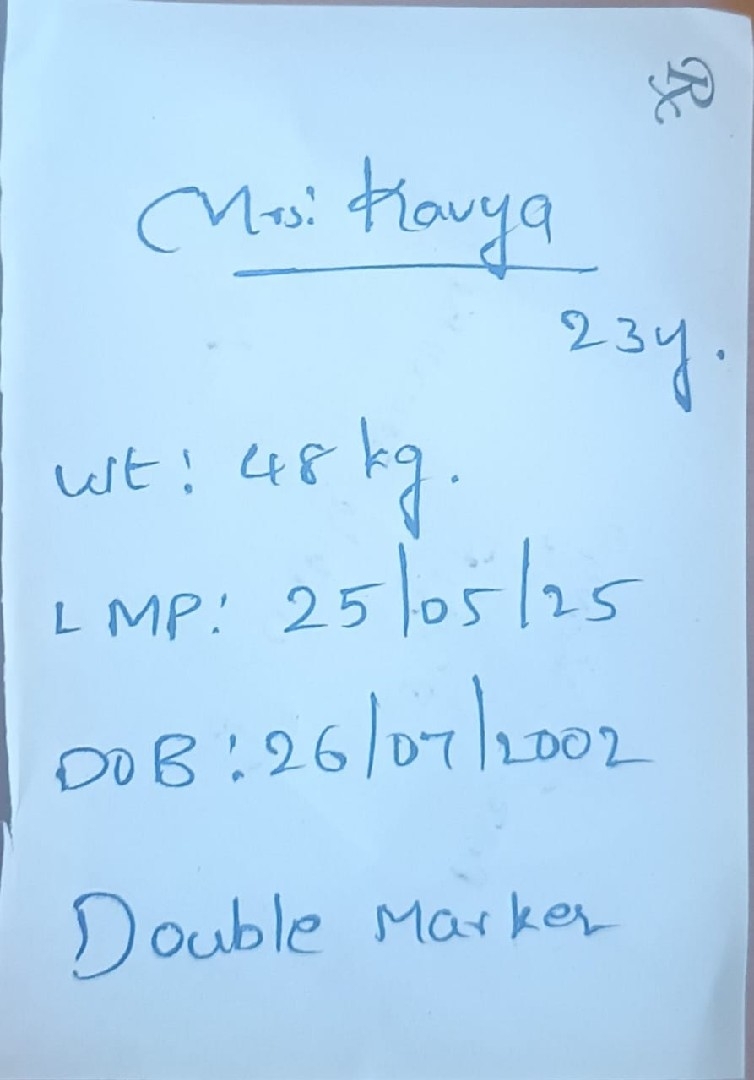 ℞
Mrs: Kavya
23y.
wt: 48 kg.
LMP: 25/05/25
DOB: 26/07/2002
Double Marker